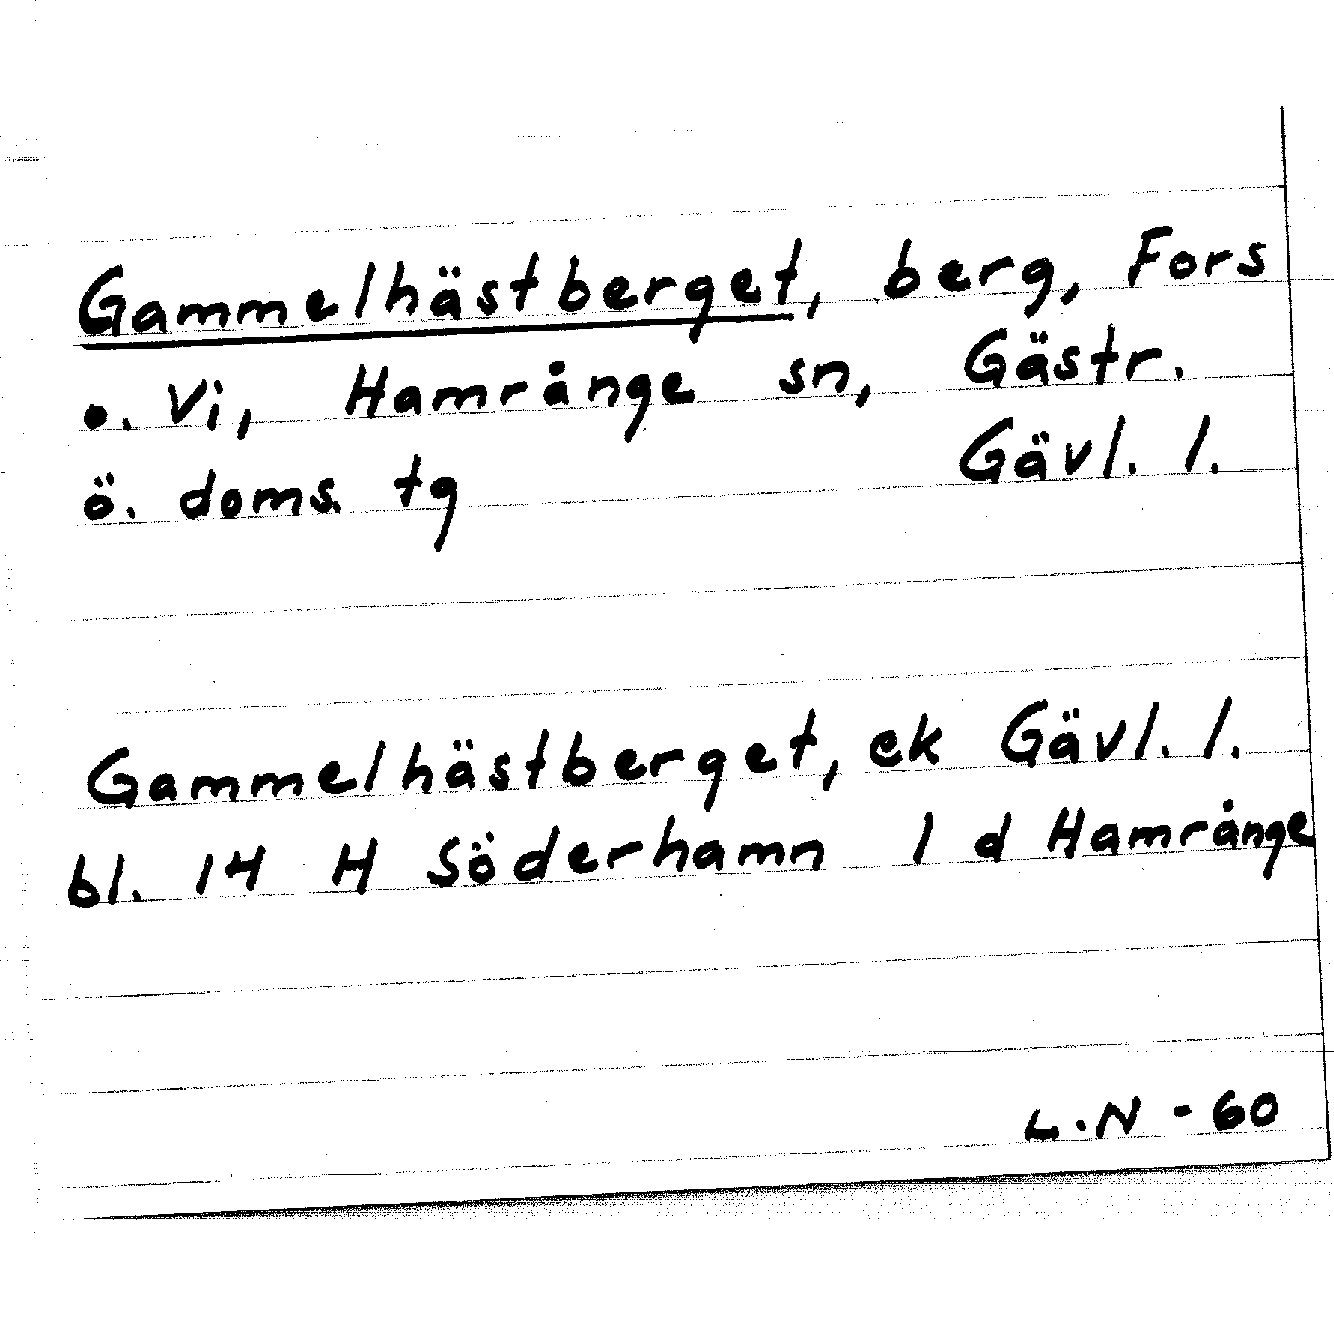 Gammelhästberget, berg, Fors
o. Vi, Hamrånge sn, Gästr.
ö. doms. tg Gävl. l.
Gammelhästberget, ek Gävl. l.
bl. 14 H Söderhamn 1 d Hamrånge
L.N - 60